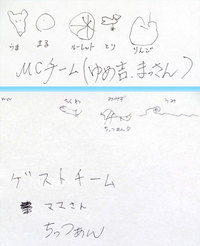 うま まる ルーレット とり りんご
MCチーム(ゆめ吉.まっさん)
ちっつあん
ゲストチーム
ママさん
ちっつあん